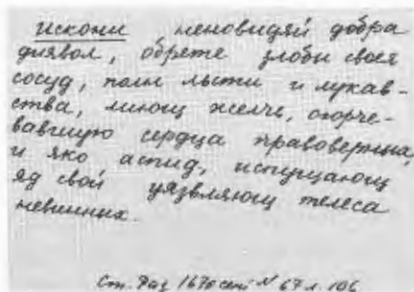 искони неновидяй добра
диявол, обрете злобы своея
сосуд, полн льсти и лукав-
ства, лиющ желчь, огорче-
вавшую сердца правоверных,
и яко аспид, испущающ
яд свой уязвляющ телеса
невинних.
Ст. Раз 1670 № 67 л. 106